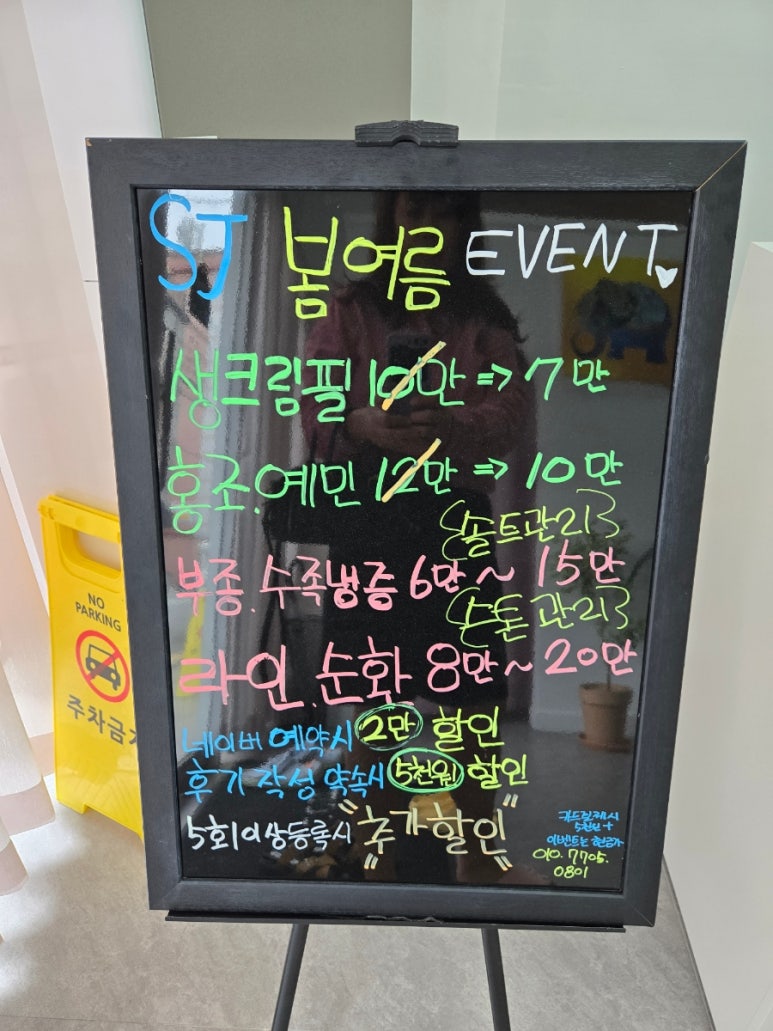 SJ 봄여름 EVENT
생크림필 10만 => 7만
홍조.예민 12만 => 10만
솔트관리
부종.수족냉증 6만 ~ 15만
스톤관리
라인.순환 8만 ~ 20만
네이버 예약시 2만 할인
후기 작성 약속시 5천원 할인
5회이상등록시 "추가할인"
카드결제시
5천원 +
이벤트는 현금가
010.7705.
0801
NO
PARKING
주차금지